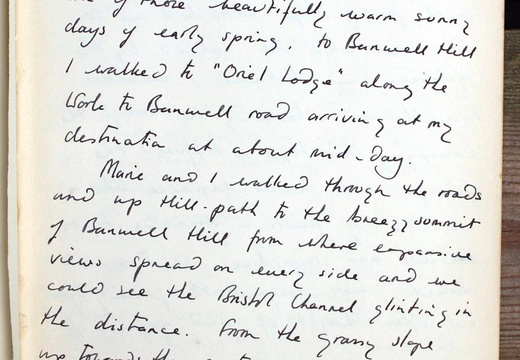 of those beautifully warm sunny
days of early spring. to Banwell Hill
I walked to "Oriel Lodge" along the
Work to Banwell road arriving at my
destination at about mid-day.
Marie and I walked through the roads
and up Hill-path to the breezy summit
of Banwell Hill from where expansive
views spread on every side and we
could see the Bristol Channel glinting in
the distance. From the grassy slope
up towards the